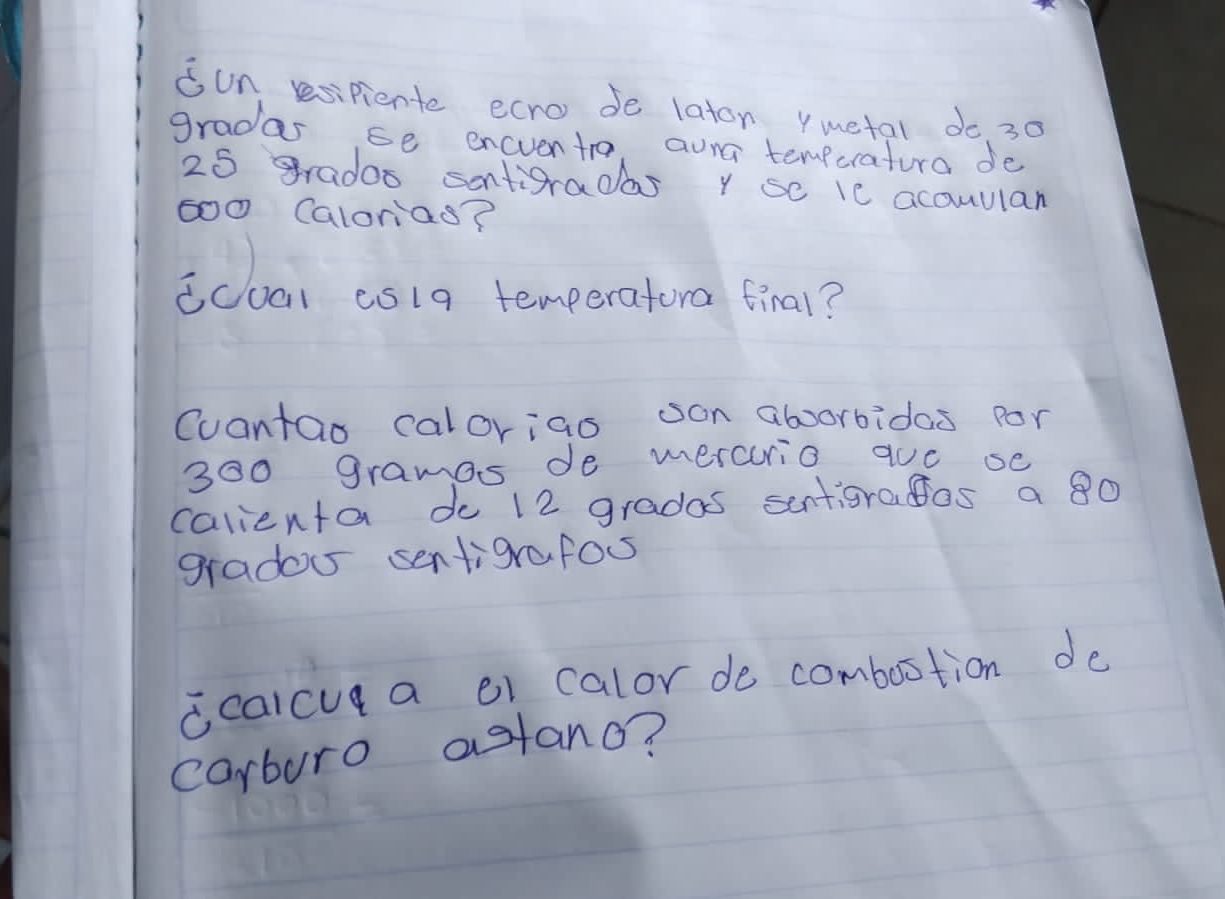 ¿un resipiente ecno de laton y metal de 30
gradas se encuentra auna temperatura de
25 grados sentigrados y se le acomulan
600 Calorias?
¿Cual es la temperatura final?
Cuantas calorias son absorbidas por
300 gramos de mercurio que se
calienta de 12 grados sentigrados a 80
grados sentigrafos
¿calcula el calor de combustion de
carburo astano?